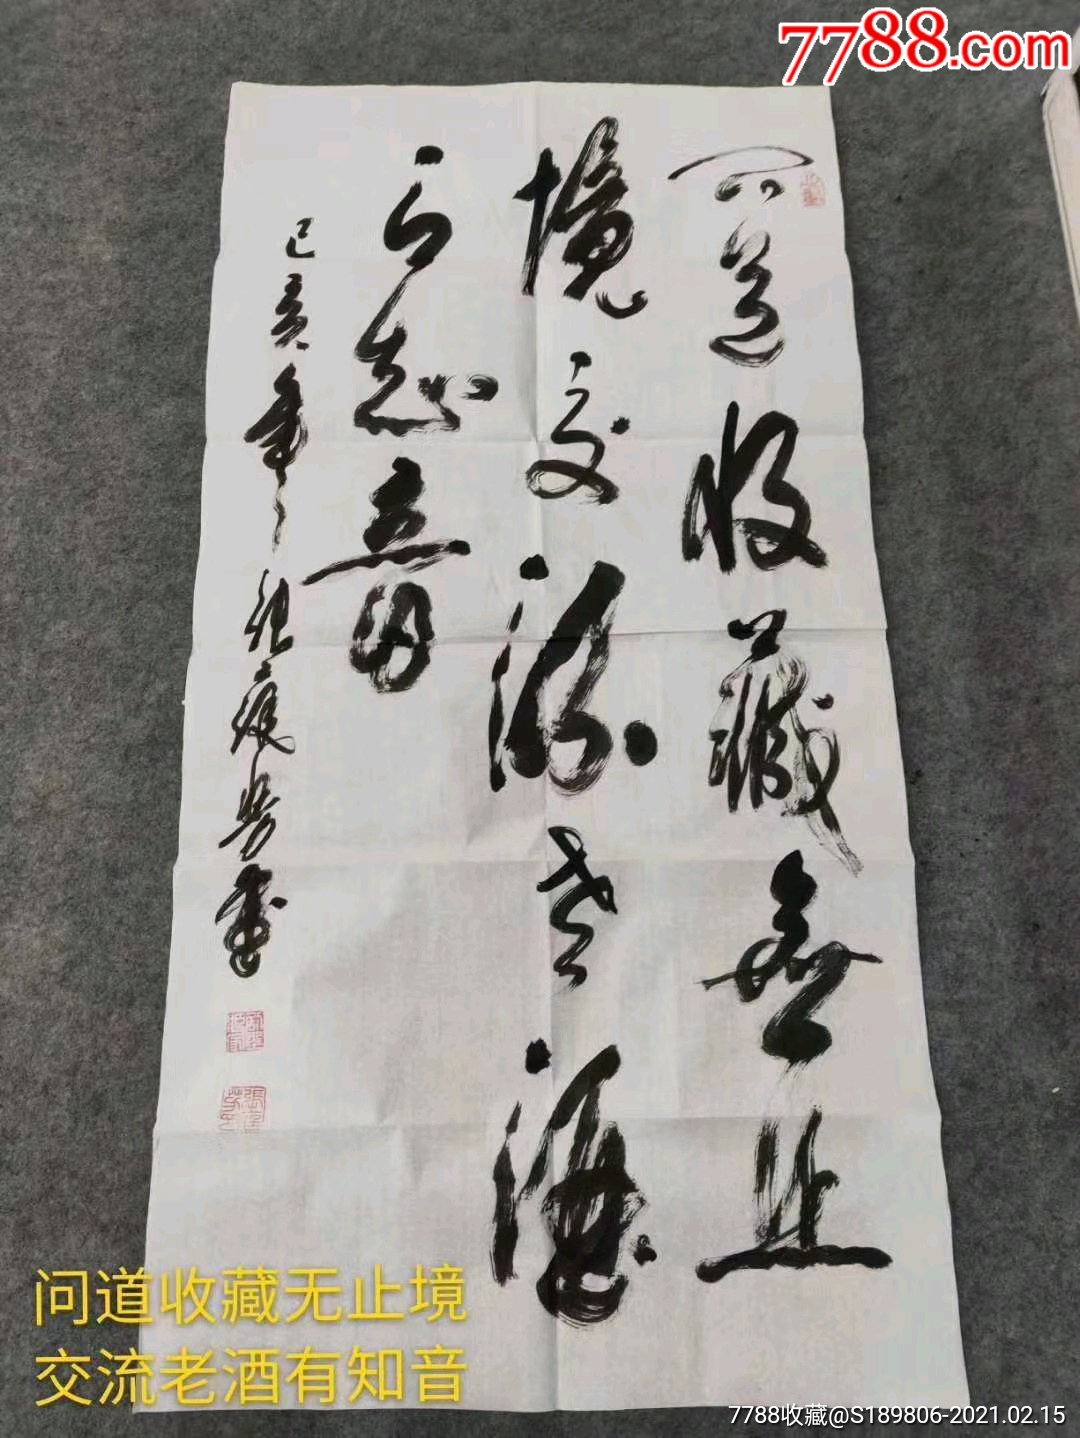 7788.com
问道收藏無止
境交流老酒
有知音
己亥年 张庭芳书
问道收藏无止境
交流老酒有知音
7788收藏@S189806-2021.02.15